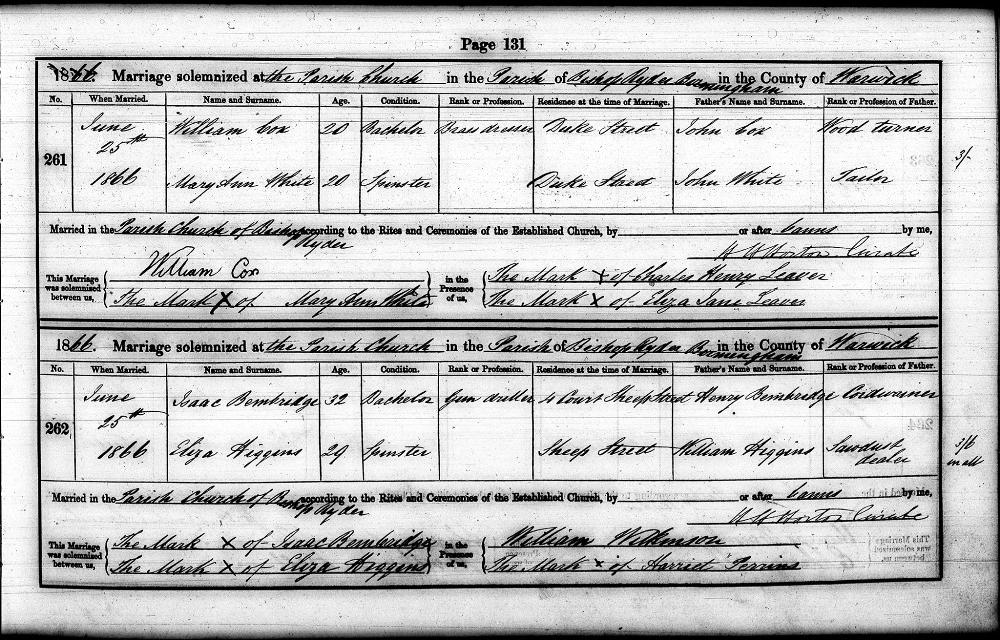 Page 131
1866. Marriage solemnized at the Parish Church in the Parish of Bishop Ryder Birmingham in the County of Warwick
No. When Married. Name and Surname. Age. Condition. Rank or Profession. Residence at the time of Marriage. Father's Name and Surname. Rank or Profession of Father.
261 June 25th 1866
William Cox 20 Bachelor Brass dresser Duke Street John Cox Wood turner
Mary Ann White 20 Spinster Duke Street John White Tailor
3/-
Married in the Parish Church of Bishop Ryder according to the Rites and Ceremonies of the Established Church, by or after banns by me,
W H Horton Curate
This Marriage was solemnized between us,
William Cox
The Mark X of Mary Ann White
in the Presence of us,
The Mark X of Charles Henry Leaver
The Mark X of Eliza Jane Leaver
1866. Marriage solemnized at the Parish Church in the Parish of Bishop Ryder Birmingham in the County of Warwick
No. When Married. Name and Surname. Age. Condition. Rank or Profession. Residence at the time of Marriage. Father's Name and Surname. Rank or Profession of Father.
262 June 25th 1866
Isaac Bembridge 32 Bachelor Gun driller 4 Court Sheep Street Henry Bembridge Cordwainer
Eliza Higgins 29 Spinster Sheep Street William Higgins Sawdust dealer
3/6 in all
Married in the Parish Church of Bishop Ryder according to the Rites and Ceremonies of the Established Church, by or after banns by me,
W H Horton Curate
This Marriage was solemnized between us,
The Mark X of Isaac Bembridge
The Mark X of Eliza Higgins
in the Presence of us,
William Wilkinson
The Mark X of Harriet Perrins